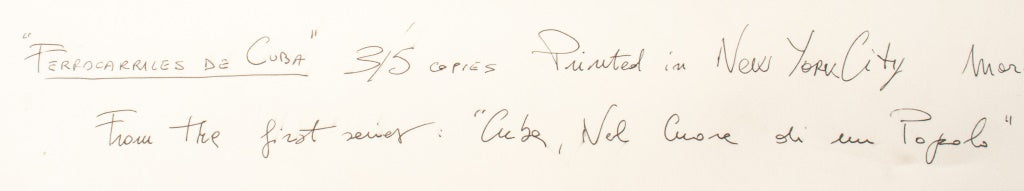 "FERROCARRILES DE CUBA" 3/5 COPIES Printed in New York City Mar
From the first series: "Cuba, Nel Cuore di un Popolo"